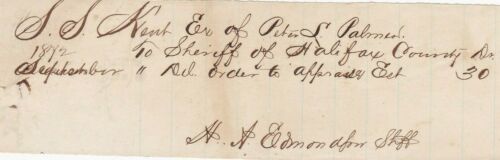 S. S. Kent Ex of Peter S. Palmer.
1872 To Sheriff of Halifax County Dr.
September " Del. order to appraise Est 30
H. A Edmondson Shff